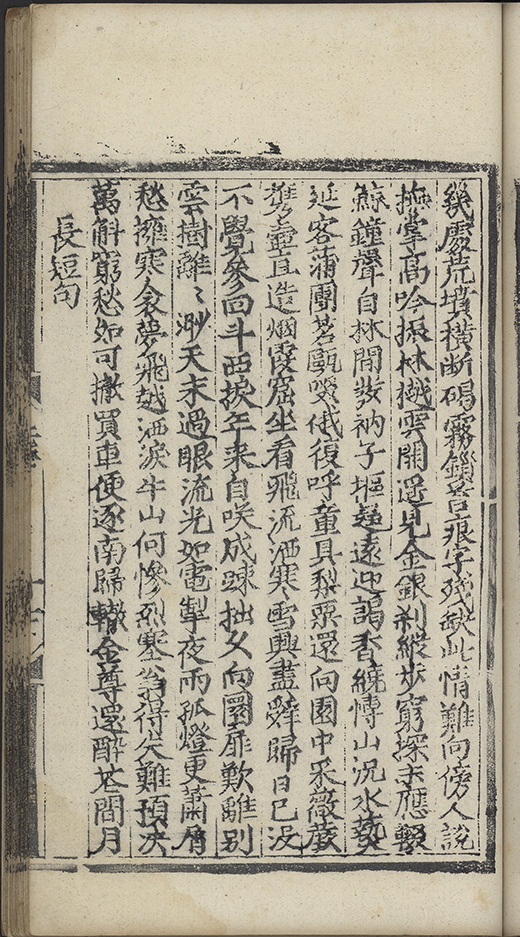 幾處荒墳橫断碣霧鎖苔痕字殘缺此情難向傍人說
撫掌高吟振林樾雲開遥見金銀刹縱步窮探未應輟
鯨鐘聲自林間發衲子摳趍遠迎謁香繞愽山沉水爇
延客蒲團茗甌啜俄復呼童具梨栗還向園中采薇蕨
携壺直造烟霞窟坐看飛流洒寒雪興盡辝歸日已没
不覺參回斗西捩年来自咲成踈拙又向圜扉歎離别
雲樹離〻渺天末過眼流光如電掣夜雨孤燈更蕭屑
愁擁寒衾夢飛越洒淚牛山何慘烈塞翁得失難預决
萬斛窮愁如可撤買車便逐南歸轍金尊還酔花間月
長短句